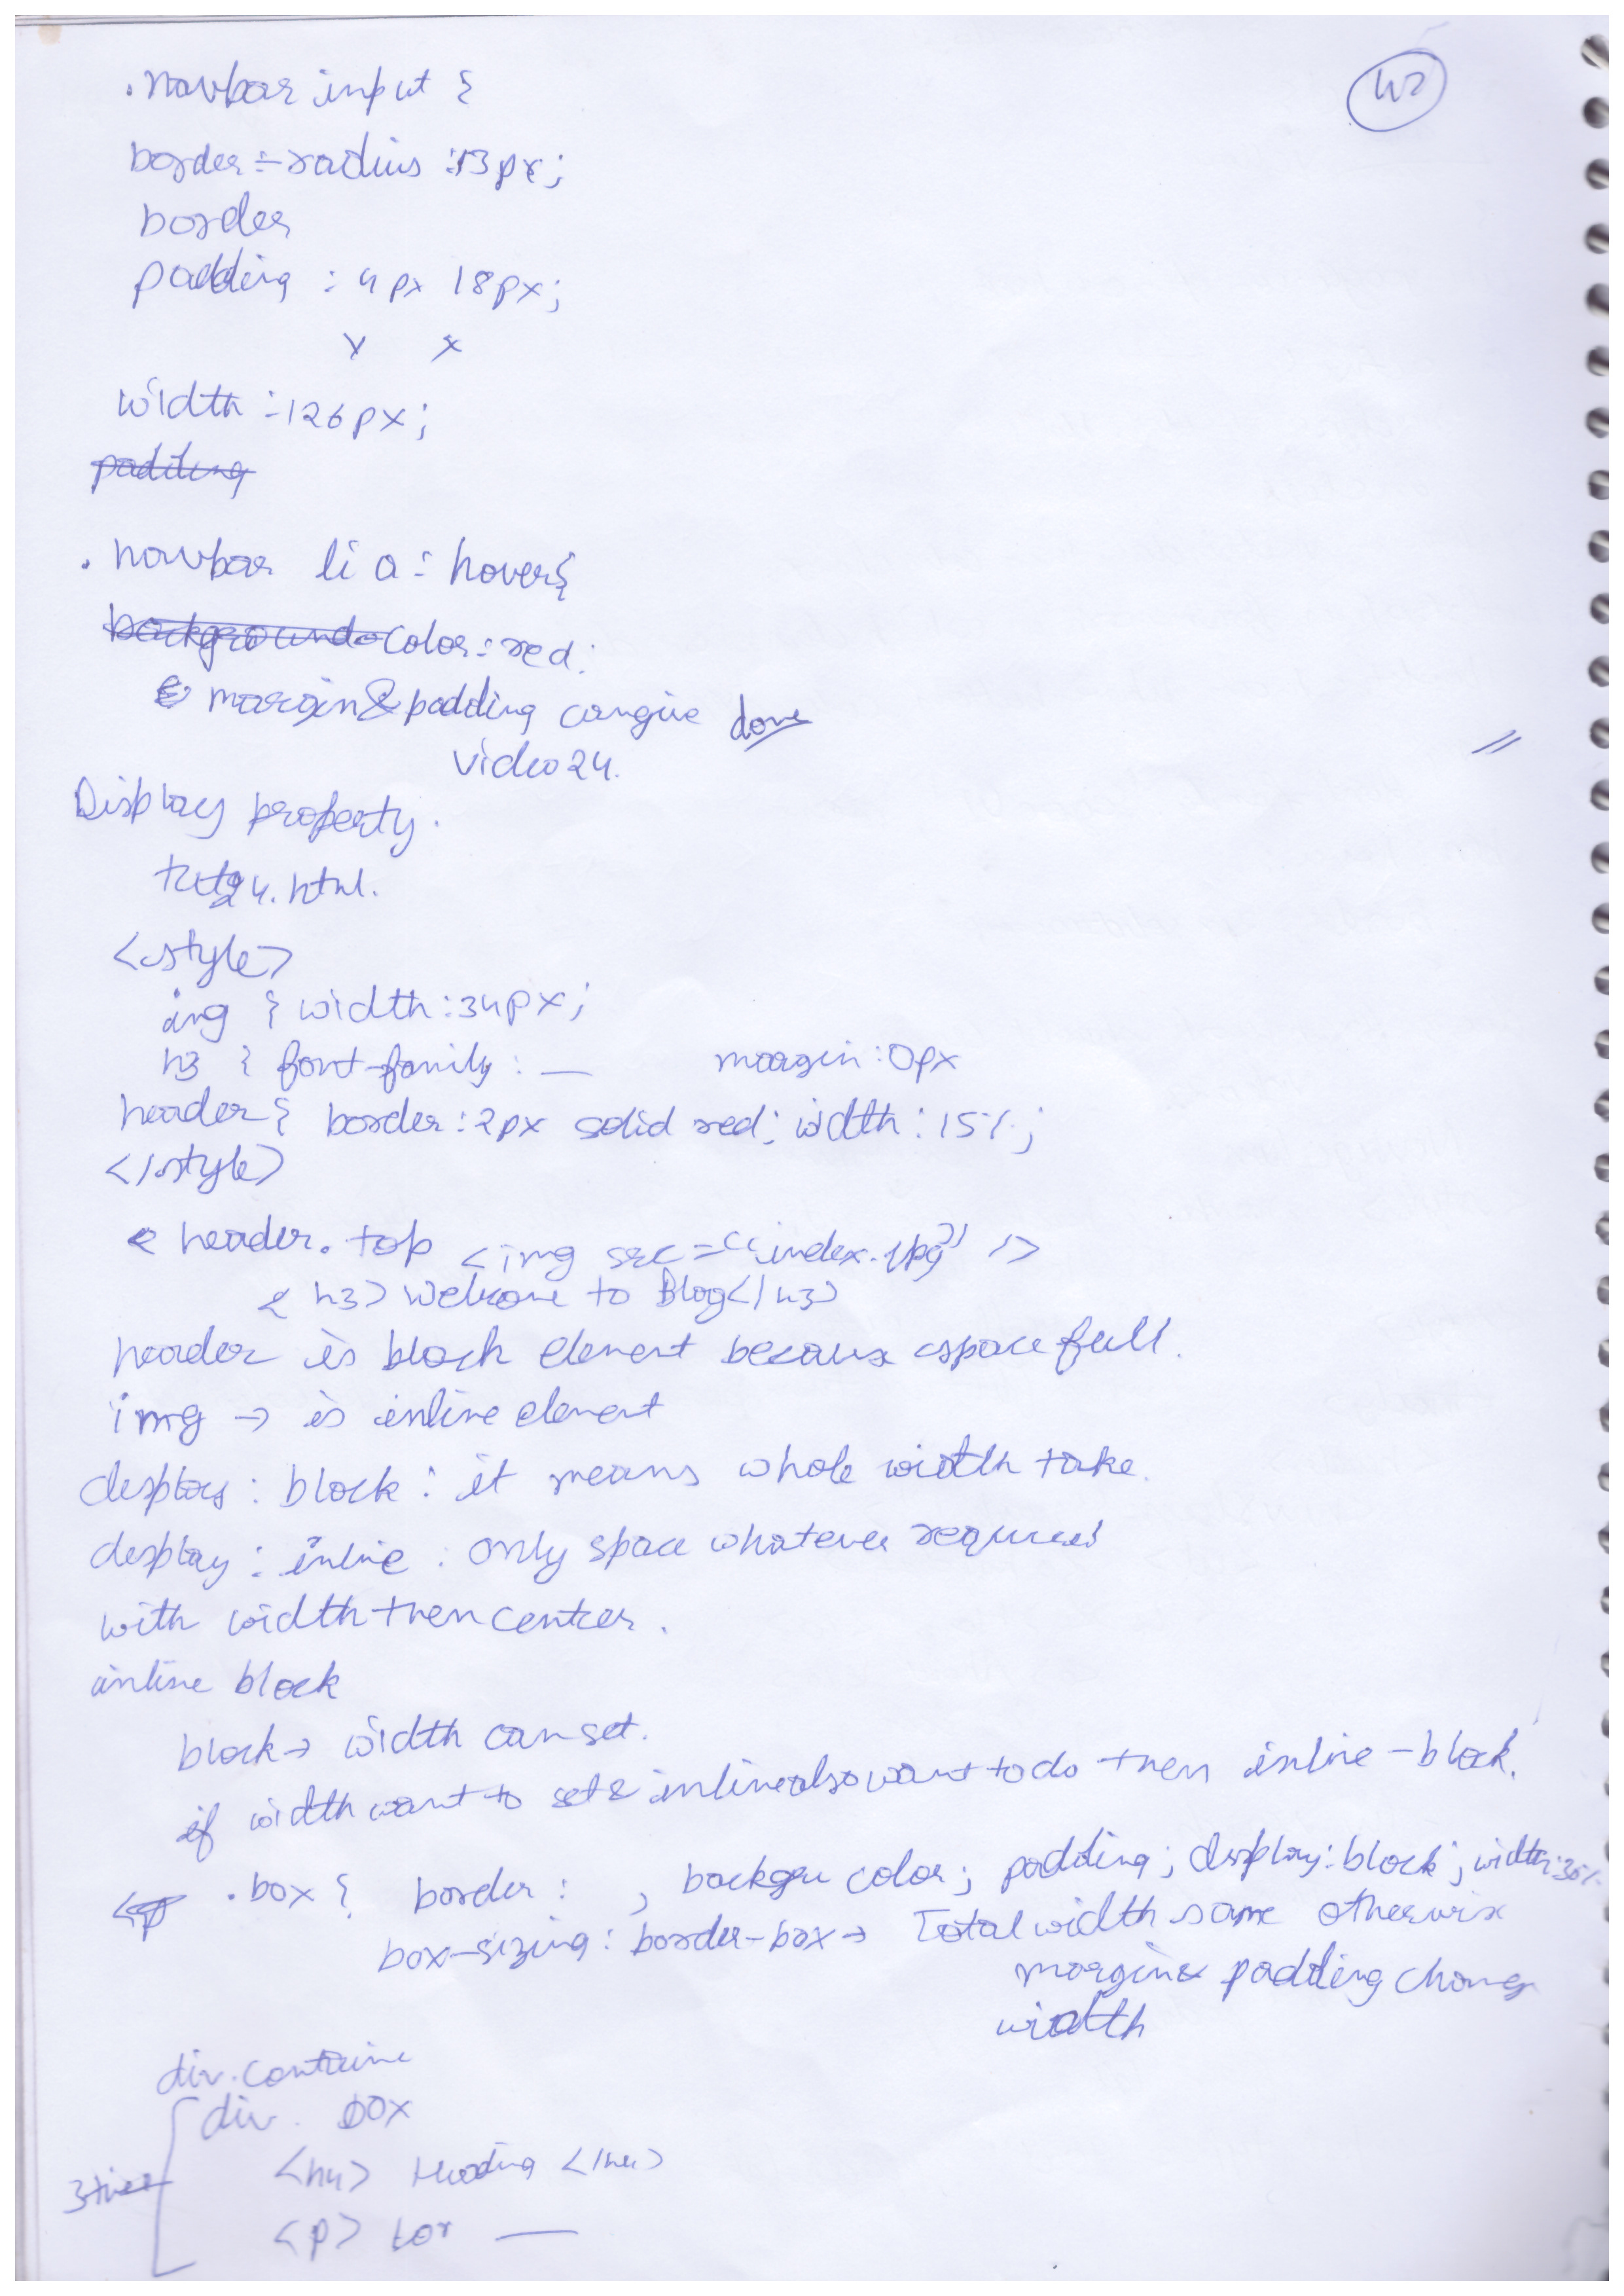 .navbar input {
border-radius :13px;
border
padding : 4px 18px;
Y X
width :126px;
padding
. navbar li a : hover{
background color : red;
margin & padding can give done
video 24.
Display property.
tut24.html.
<style>
img { width :34px;
h3 { font-family : — margin :0px
header { border :2px solid red; width : 15%;
</style>
< header. top <img src = "index.jpg" />
< h3> Welcome to Blog</h3>
header is block element because space full.
img → is inline element
display : block : it means whole width take.
display : inline : only space whatever required
with width then center.
inline block
block → width can set.
if width want to set & inline also want to do then inline-block.
<p .box { border : , backgru color; padding; display:block; width:35%
box-sizing : border-box → Total width same otherwise
margin & padding change
width
div.containe
div. box
<h4> Heading </h4>
3 times
<p> lor —